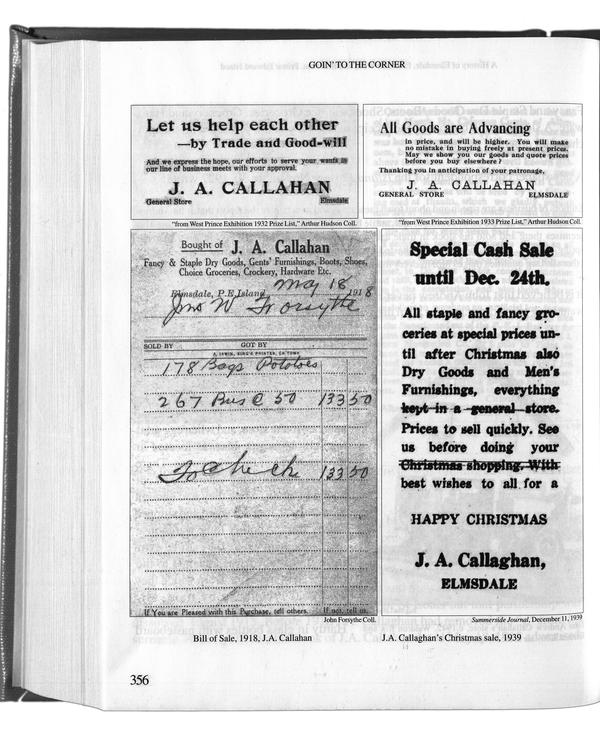 GOIN' TO THE CORNER
Let us help each other
—by Trade and Good-will
And we express the hope, our efforts to serve your wants in
our line of business meets with your approval.
J. A. CALLAHAN
General Store Elmsdale
"from West Prince Exhibition 1932 Prize List," Arthur Hudson Coll.
All Goods are Advancing
in price, and will be higher. You will make
no mistake in buying freely at present prices.
May we show you our goods and quote prices
before you buy elsewhere?
Thanking you in anticipation of your patronage,
J. A. CALLAHAN
GENERAL STORE ELMSDALE
"from West Prince Exhibition 1933 Prize List," Arthur Hudson Coll.
Bought of J. A. Callahan
Fancy & Staple Dry Goods, Gents' Furnishings, Boots, Shoes,
Choice Groceries, Crockery, Hardware Etc.
Elmsdale, P.E.Island May 18 1918
Jno W Forsythe
SOLD BY GOT BY
178 Bags Potatoes
267 Bus @ 50 133 50
To Check 133 50
If You are Pleased with this Purchase, tell others. If not, tell us.
John Forsythe Coll.
Bill of Sale, 1918, J.A. Callahan
Special Cash Sale
until Dec. 24th.
All staple and fancy gro-
ceries at special prices un-
til after Christmas also
Dry Goods and Men's
Furnishings, everything
kept in a general store.
Prices to sell quickly. See
us before doing your
Christmas shopping. With
best wishes to all for a
HAPPY CHRISTMAS
J. A. Callaghan,
ELMSDALE
Summerside Journal, December 11, 1939
J.A. Callaghan's Christmas sale, 1939
356